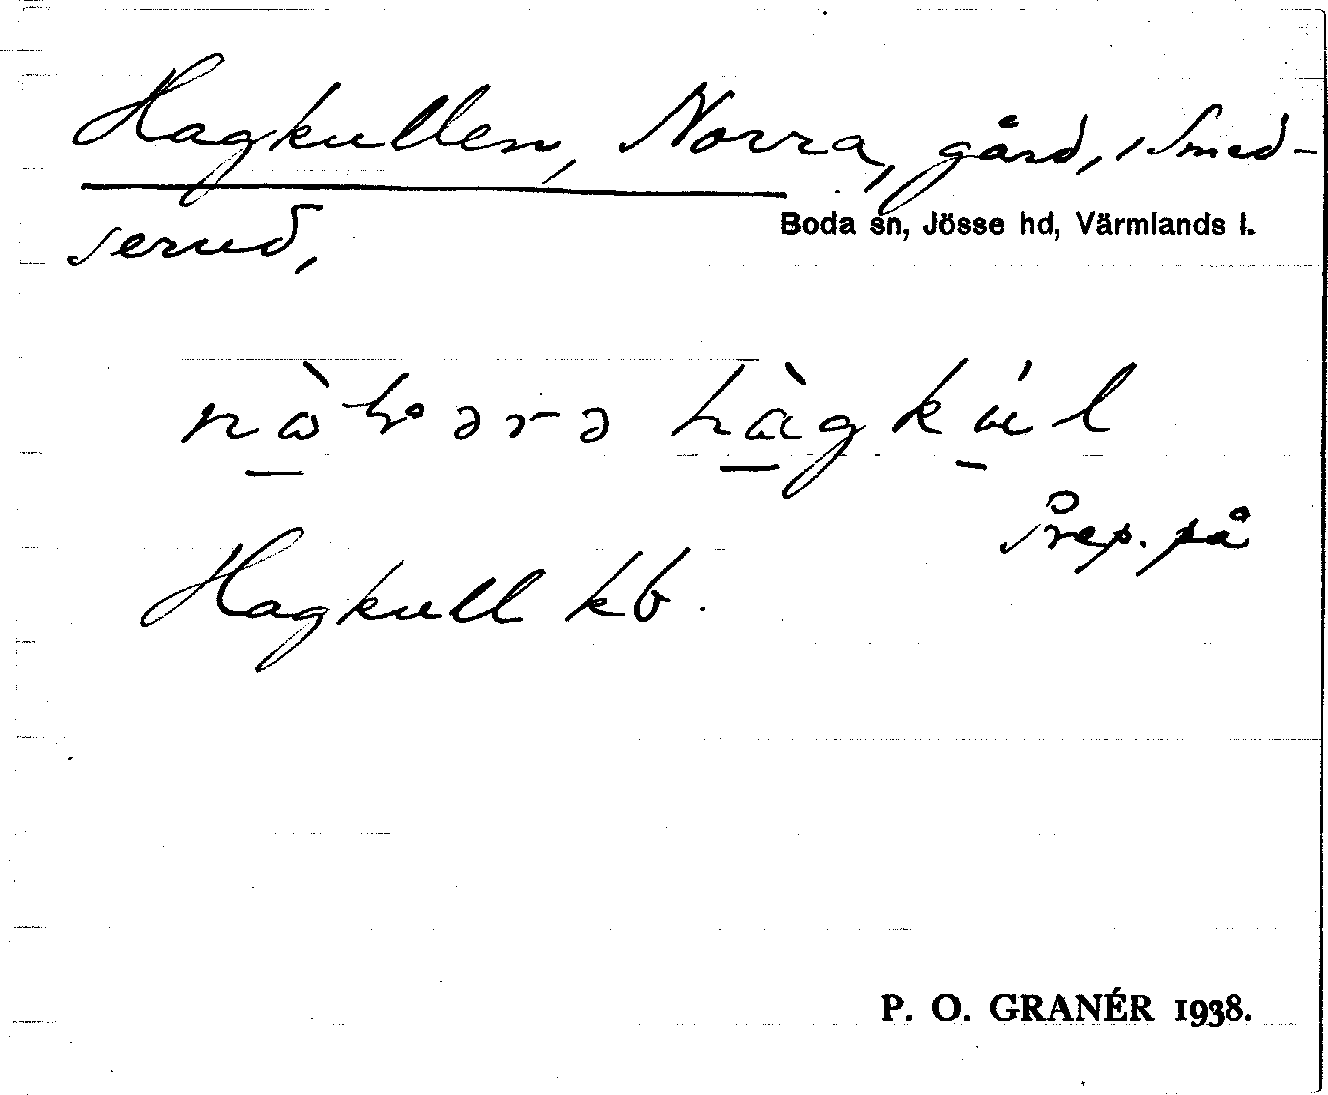 Hagkullen, Norra, gård, i Smed-
serud,
Boda sn, Jösse hd, Värmlands l.
hàgkúl
Prep. på
Hagkull kb.
P. O. GRANÉR 1938.